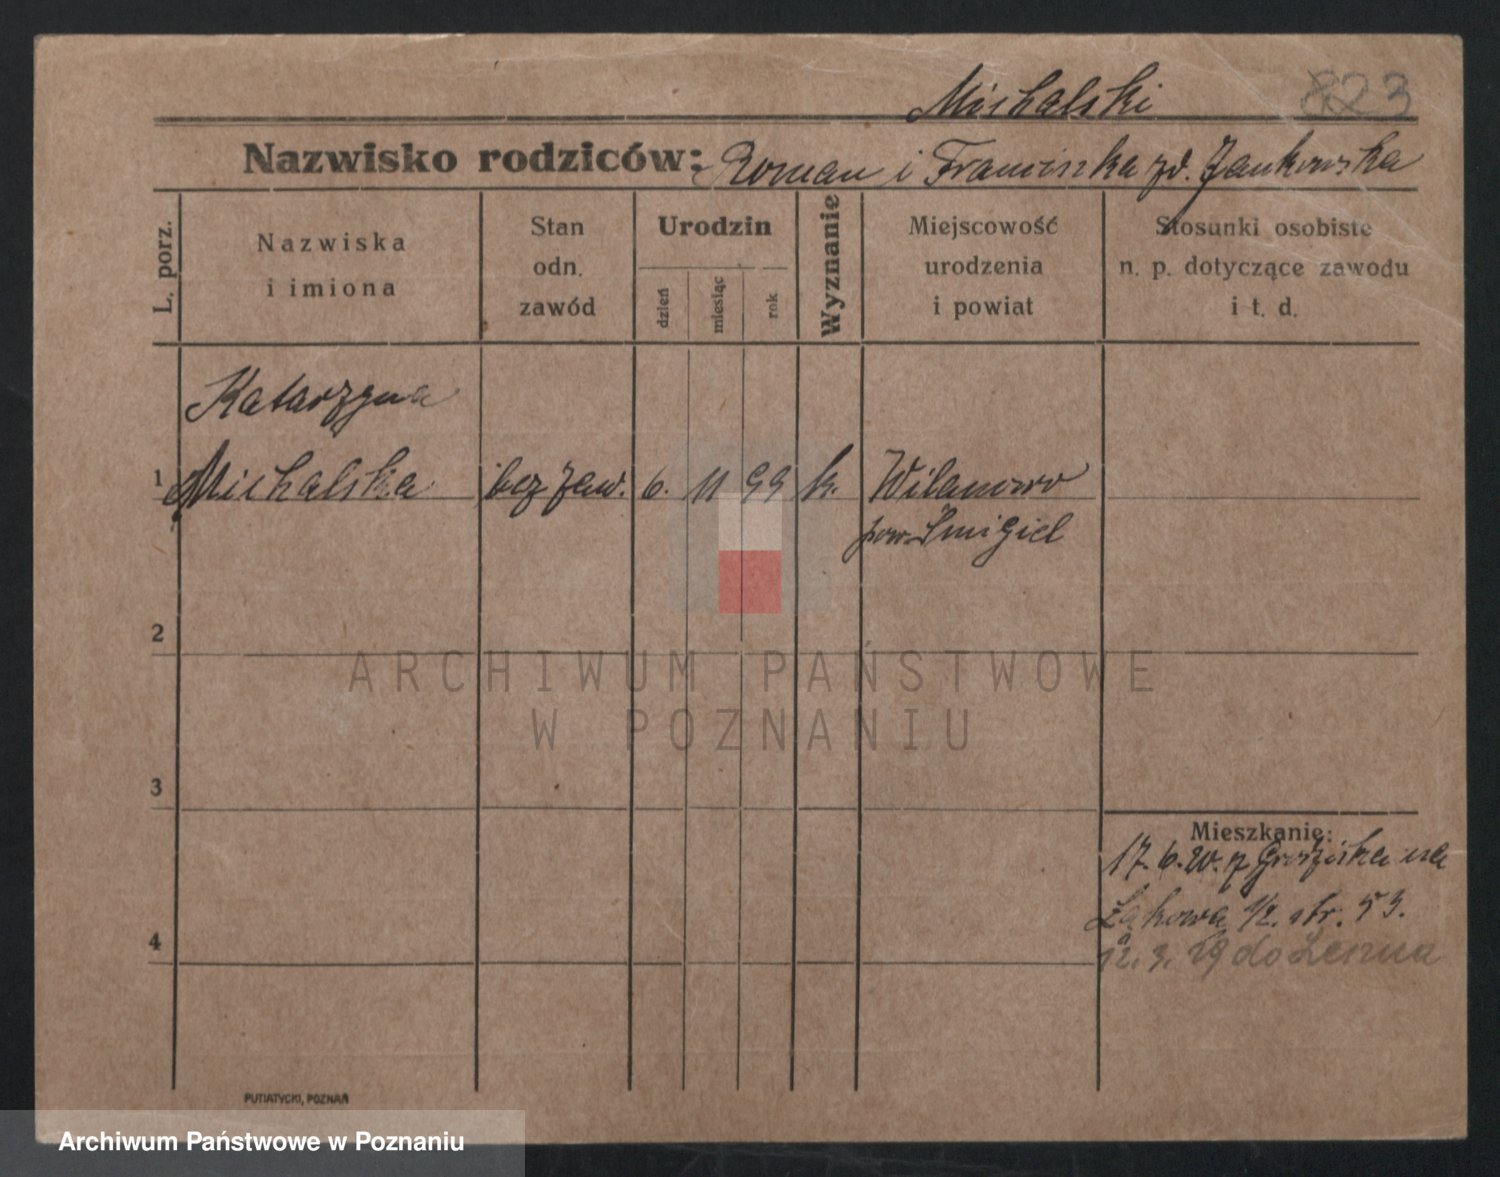 823
Michalski
Nazwisko rodziców: Roman i Franciszka zd. Jankowska
L. porz.
Nazwiska
i imiona
Stan
odn.
zawód
Urodzin
dzień
miesiąc
rok
Wyznanie
Miejscowość
urodzenia
i powiat
Stosunki osobiste
n. p. dotyczące zawodu
i t. d.
Katarzyna
1 Michalska bez zaw. 6. 11 99 k. Wilanowo
pow. Śmigiel
2
ARCHIWUM PAŃSTWOWE
W POZNANIU
3
Mieszkanie:
17. 6. 20. z Grodziska na
Łąkowa 1/2. str. 53.
12. 3. 29 do Leszna
4
PUTIATYCKI, POZNAŃ
Archiwum Państwowe w Poznaniu